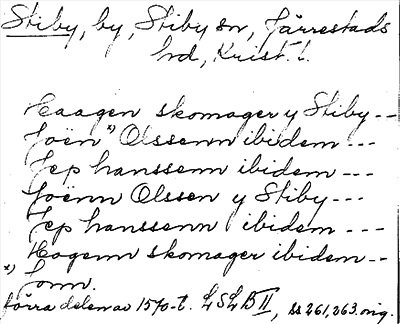 Stiby, by, Stiby sn, Järrestads
hd, Krist. l.
Haagen skomager y Stiby --
Joën x) Olssenn ibidem ---
Jep hanssenn ibidem ---
Joënn Olssen y Stiby ---
Jep hanssenn ibidem ---
Hogenn skomager ibidem --
x) Jonn.
förra delen av 1570-t. LSLB II, ss 261, 263. orig.